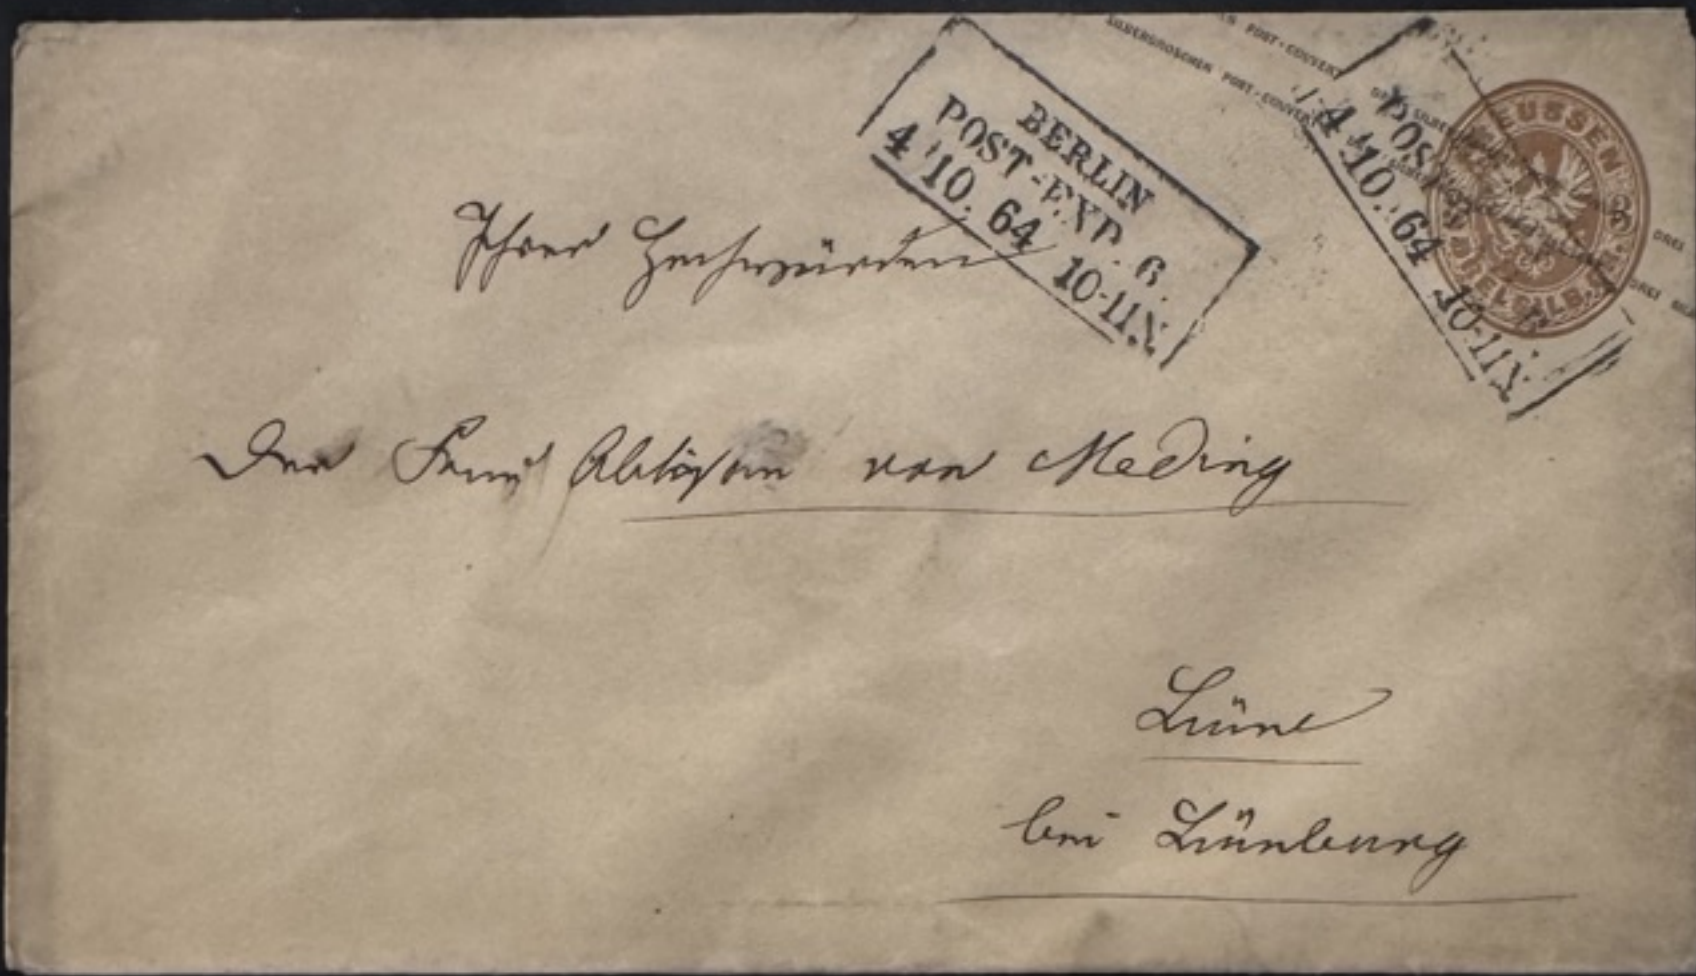 SILBERGROSCHEN POST-COUVERT
POST-COUVERT
BERLIN
POST-EXP. 6.
4 10. 64 10-11V.
POST
4 10. 64 10-11V.
PREUSSEN
3
DREI SILB.
DREI
DREI
Ihrer Hochwürden
Der Frau Äbtissin von Meding
Lüne
bei Lünburg